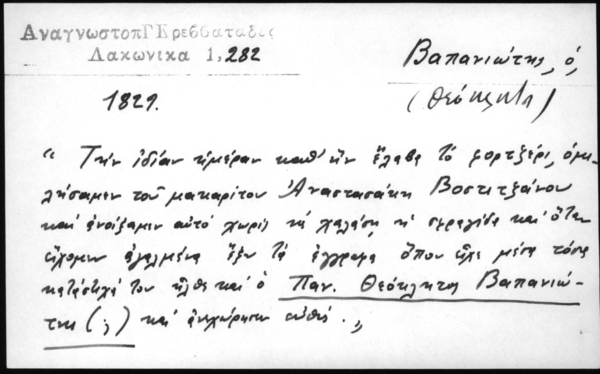 ΑναγνωστοπΓΚρεββαταδες
Λακωνικα 1,282
Βαπανιώτης, ὁ,
1821.
(Θεόκλητος)
“ Τὴν ἰδίαν ἡμέραν καθ' ἣν ἔλαβα τὸ φορτζέρι, ὁμι-
λήσαμεν τοῦ μακαρίτου Ἀναστασάκη Βοστιτζάνου
καὶ ἀνοίξαμεν αὐτὸ χωρὶς νὰ χαλάσῃ ἡ σφραγίδα καὶ ὅταν
εἴχομεν βγαλμένα ἔξω τὰ ἔγγραφα ὅπου εἶχε μέσα τόσα
κατάστιχά του ἦλθε καὶ ὁ Παν. Θεόκλητος Βαπανιώ-
της (;) καὶ ἀνεχώρησεν εὐθύς. „